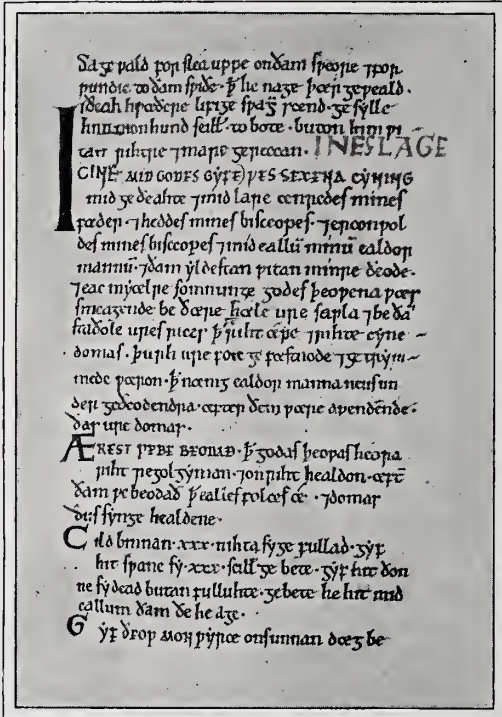 Sage ƿald for slea uppe onðam speore ⁊for
ƿundie toðam sƿiðe · þ he nage þær geƿeald ·
ðeah hræðere lifige sƿa ge sylle
him mon hund scill · to bote · buton him ƿi
tan rihtre ⁊mare gereccan · INES LAGE
IC INE MID GODES GYFE ǷES SEXENA CYNING
mid ge ðeahte ⁊mid lare cenredes mines
fæder · ⁊heddes mines bisceopes · ⁊erconƿol
des mines bisceopes ⁊mid eallū minū ealdor
mannū · ⁊ðam yldestan ƿitan minre ðeode ·
⁊eac mycelre somnunge godes þeoƿena ƿær
smeagende be ðære hæle ure saƿla ⁊be ðā
staðole ures rices þ riht æƿe ⁊rihte cyne
domas · þurh ure folc ge fæstnode ⁊ge trym
mede ƿæron · þ nænig ealdor manna ne us un
der geðeodendra · æfter ðem ƿære aƿendende ·
ðas ure domas ·
ÆREST ǷE BEODAÐ · þ godas þeoƿas heora
riht regol gyman · ⁊on riht healdon · æft̄
ðam ƿe beodað þ ealles folces æ · ⁊domas
ðus synge healdene ·
Cild binnan · xxx · nihta sy ge fullad · gyf
hit sƿane sy · xxx · scill ge bete · gyf hit ðon
ne sy dead butan fulluhte · gebete he hit mid
eallum ðam ðe he age ·
Gyf ðeoƿ mon ƿyrce on sunnan dæg be